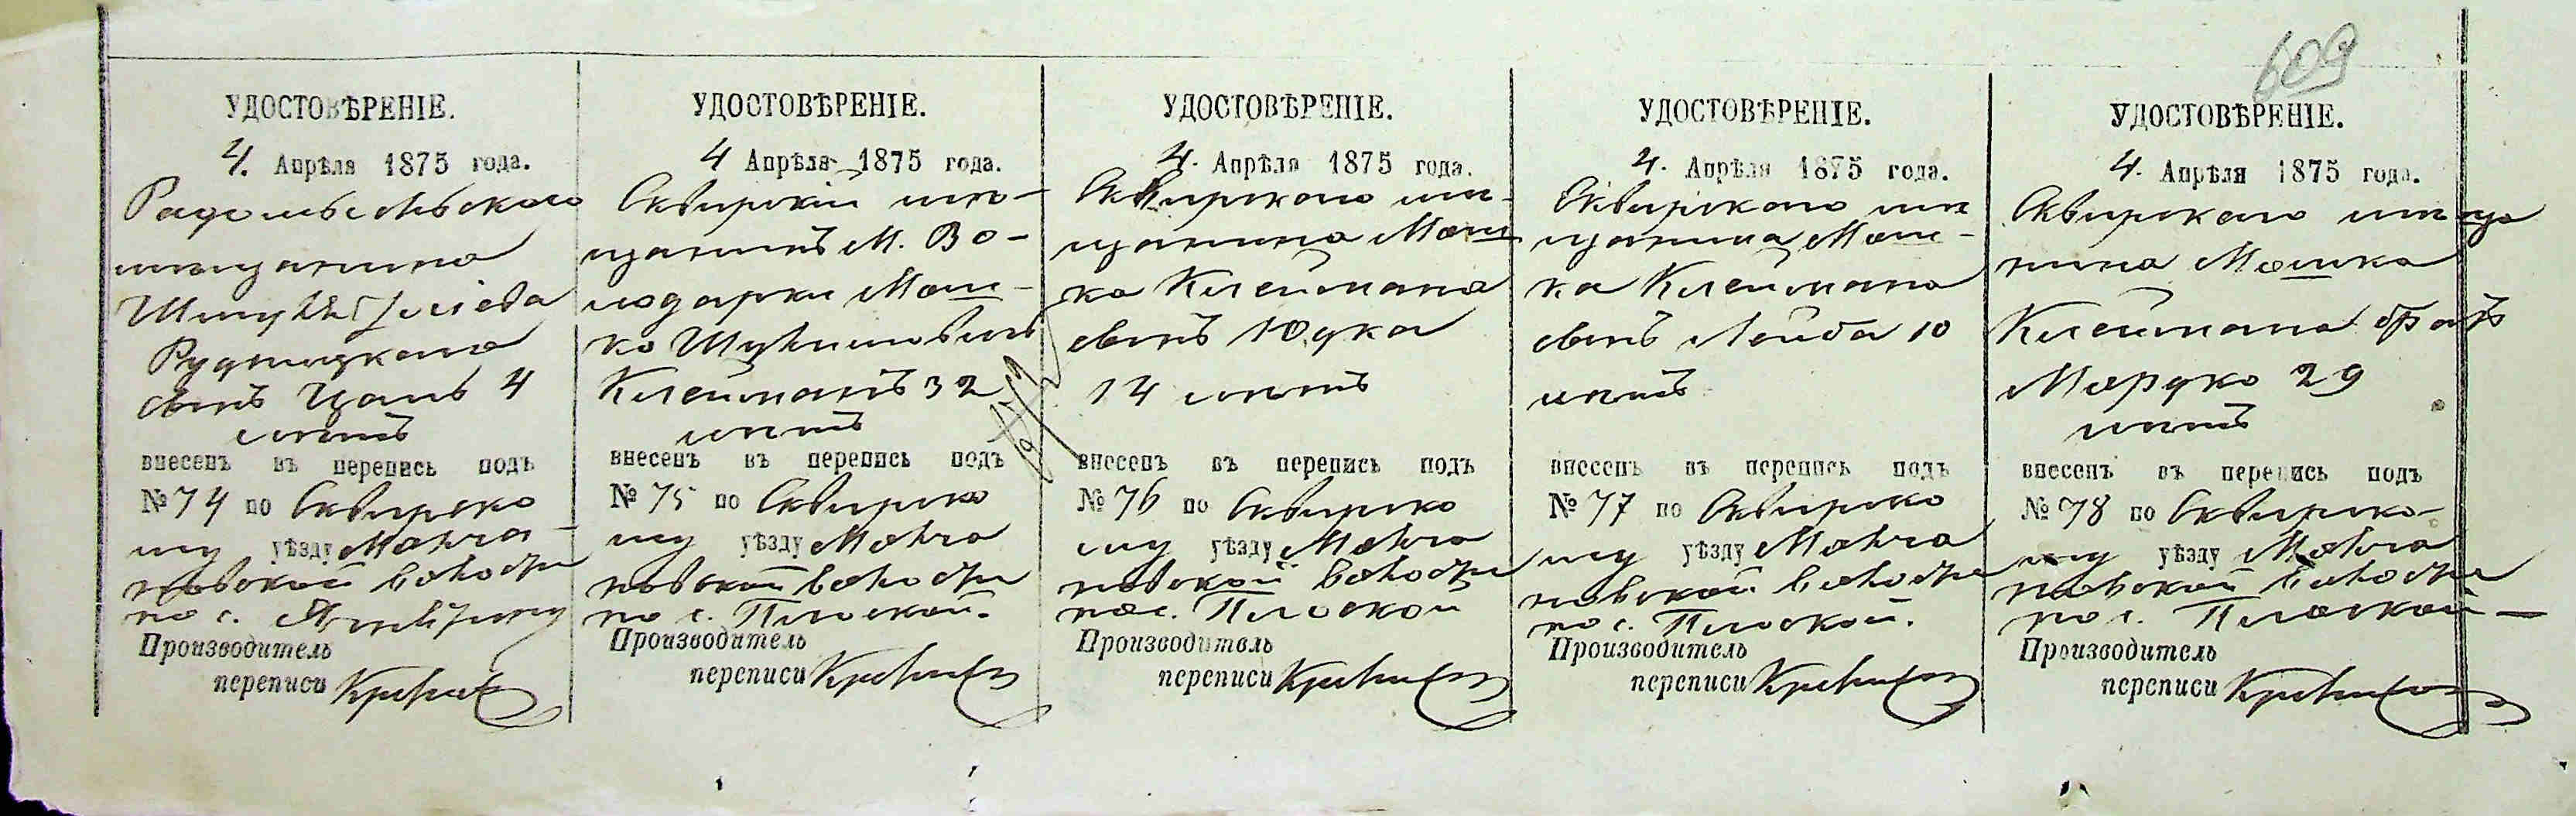 609
УДОСТОВѢРЕНІЕ.
4. Апрѣля 1875 года.
Радомысльского
мещанина
Рудницкаго
сынъ 4
летъ
внесенъ въ перепись подъ
№ 74 по Сквирско
му уѣзду Молча
новской волости
по с.
Производитель
переписи
УДОСТОВѢРЕНІЕ.
4 Апрѣля 1875 года.
Сквирскій ме-
щанинъ М. Во-
лодарки Мош-
ко
Клейманъ 32
летъ
внесенъ въ перепись подъ
№ 75 по Сквирско
му уѣзду Молча
новской волости
по с. Плоской.
Производитель
переписи
УДОСТОВѢРЕНІЕ.
4. Апрѣля 1875 года.
Сквирского ме-
щанина Мош
ка Клеймана
сынъ Юдка
14 летъ
внесенъ въ перепись подъ
№ 76 по Сквирско
му уѣзду Молча
новской волости
по с. Плоской
Производитель
переписи
УДОСТОВѢРЕНІЕ.
4. Апрѣля 1875 года.
Сквирского ме
щанина Мош-
ка Клеймана
сынъ Лейба 10
летъ
внесенъ въ перепись подъ
№ 77 по Сквирско
му уѣзду Молча
новской волости
по с. Плоской.
Производитель
переписи
УДОСТОВѢРЕНІЕ.
4. Апрѣля 1875 года.
Сквирского меща
нина Мошка
Клеймана братъ
Мордко 29
летъ
внесенъ въ перепись подъ
№ 78 по Сквирско-
му уѣзду Молча
новской волости
по с. Плоской
Производитель
переписи